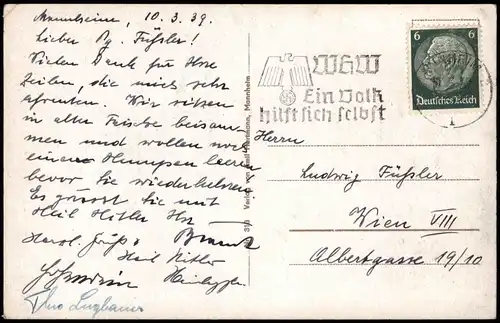 Mannheim, 10.3.39.
Lieber Pg. Füßler!
Vielen Dank für Ihre
Zeilen, die mich sehr
erfreuten. Wir sitzen
in alter Frische beisam-
men und wollen noch
einen Humpen leeren
bevor Sie wiederkehren.
Es grüsst Sie mit
Heil Hitler Ihr
Herzl. Grüße
Heil Hitler
Theo
313 Verlag von Mannheim
WHW
Ein Volk
hilft sich selbst
6 6
Deutsches Reich
Herrn
Ludwig Füßler
Wien VIII
Albertgasse 19/10